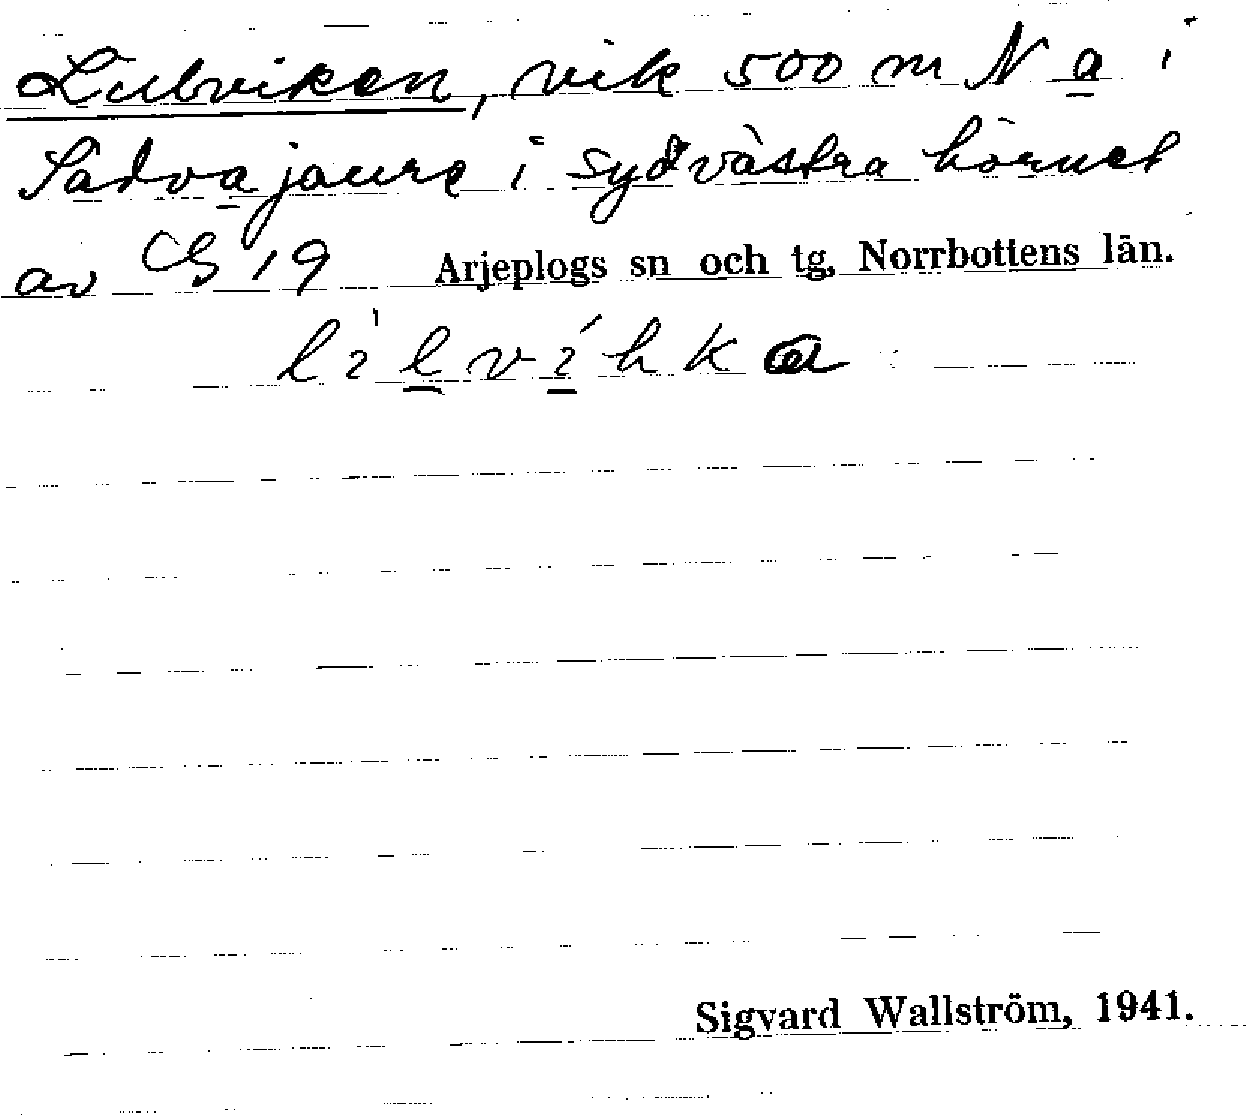 Lulviken, vik 500 m N a i
Sadvajaure i sydvästra hörnet
av CG 19 Arjeplogs sn och tg, Norrbottens län.
lìlvíhka
Sigvard Wallström, 1941.